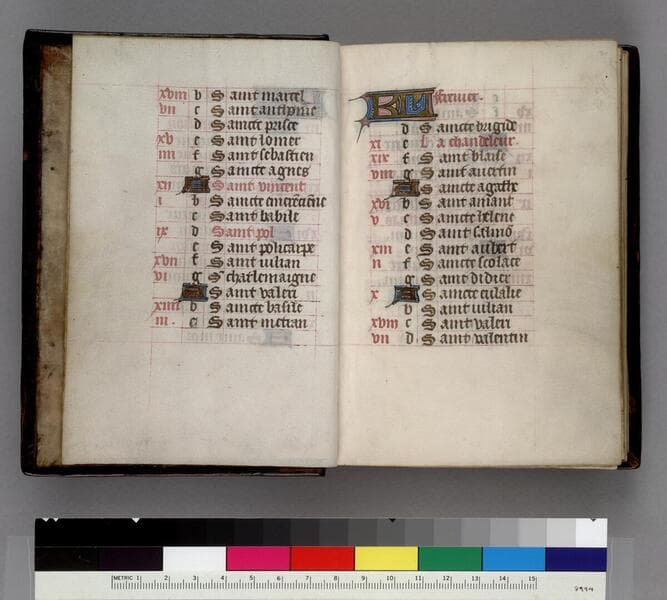 xviii b Saint marcel
vii c Saint anthoine
d Saincte prisce
xv e Saint lomer
iiii f Saint sebastien
g Saincte agnes
xii A Saint vincent
i b Saincte emerenciene
c Saint babile
ix d Saint pol
e Saint policarpe
xvii f Saint iulian
vi g S charlemaigne
A Saint valeri
xiiii b Saincte basile
iii. c Saint metran
KL feurier.
d Saincte brigide
xi e La chandeleur.
xix f Saint blaise
viii g Saint auertin
A Saincte agathe
xvi b Saint amant
v c Saincte helene
d Saint salmō
xiii e Saint aubert
ii f Saincte scolace
g Saint didier
x A Saincte eulalie
b Saint iulian
xviii c Saint valeri
vii d Saint valentin
METRIC 1 2 3 4 5 6 7 8 9 10 11 12 13 14 15